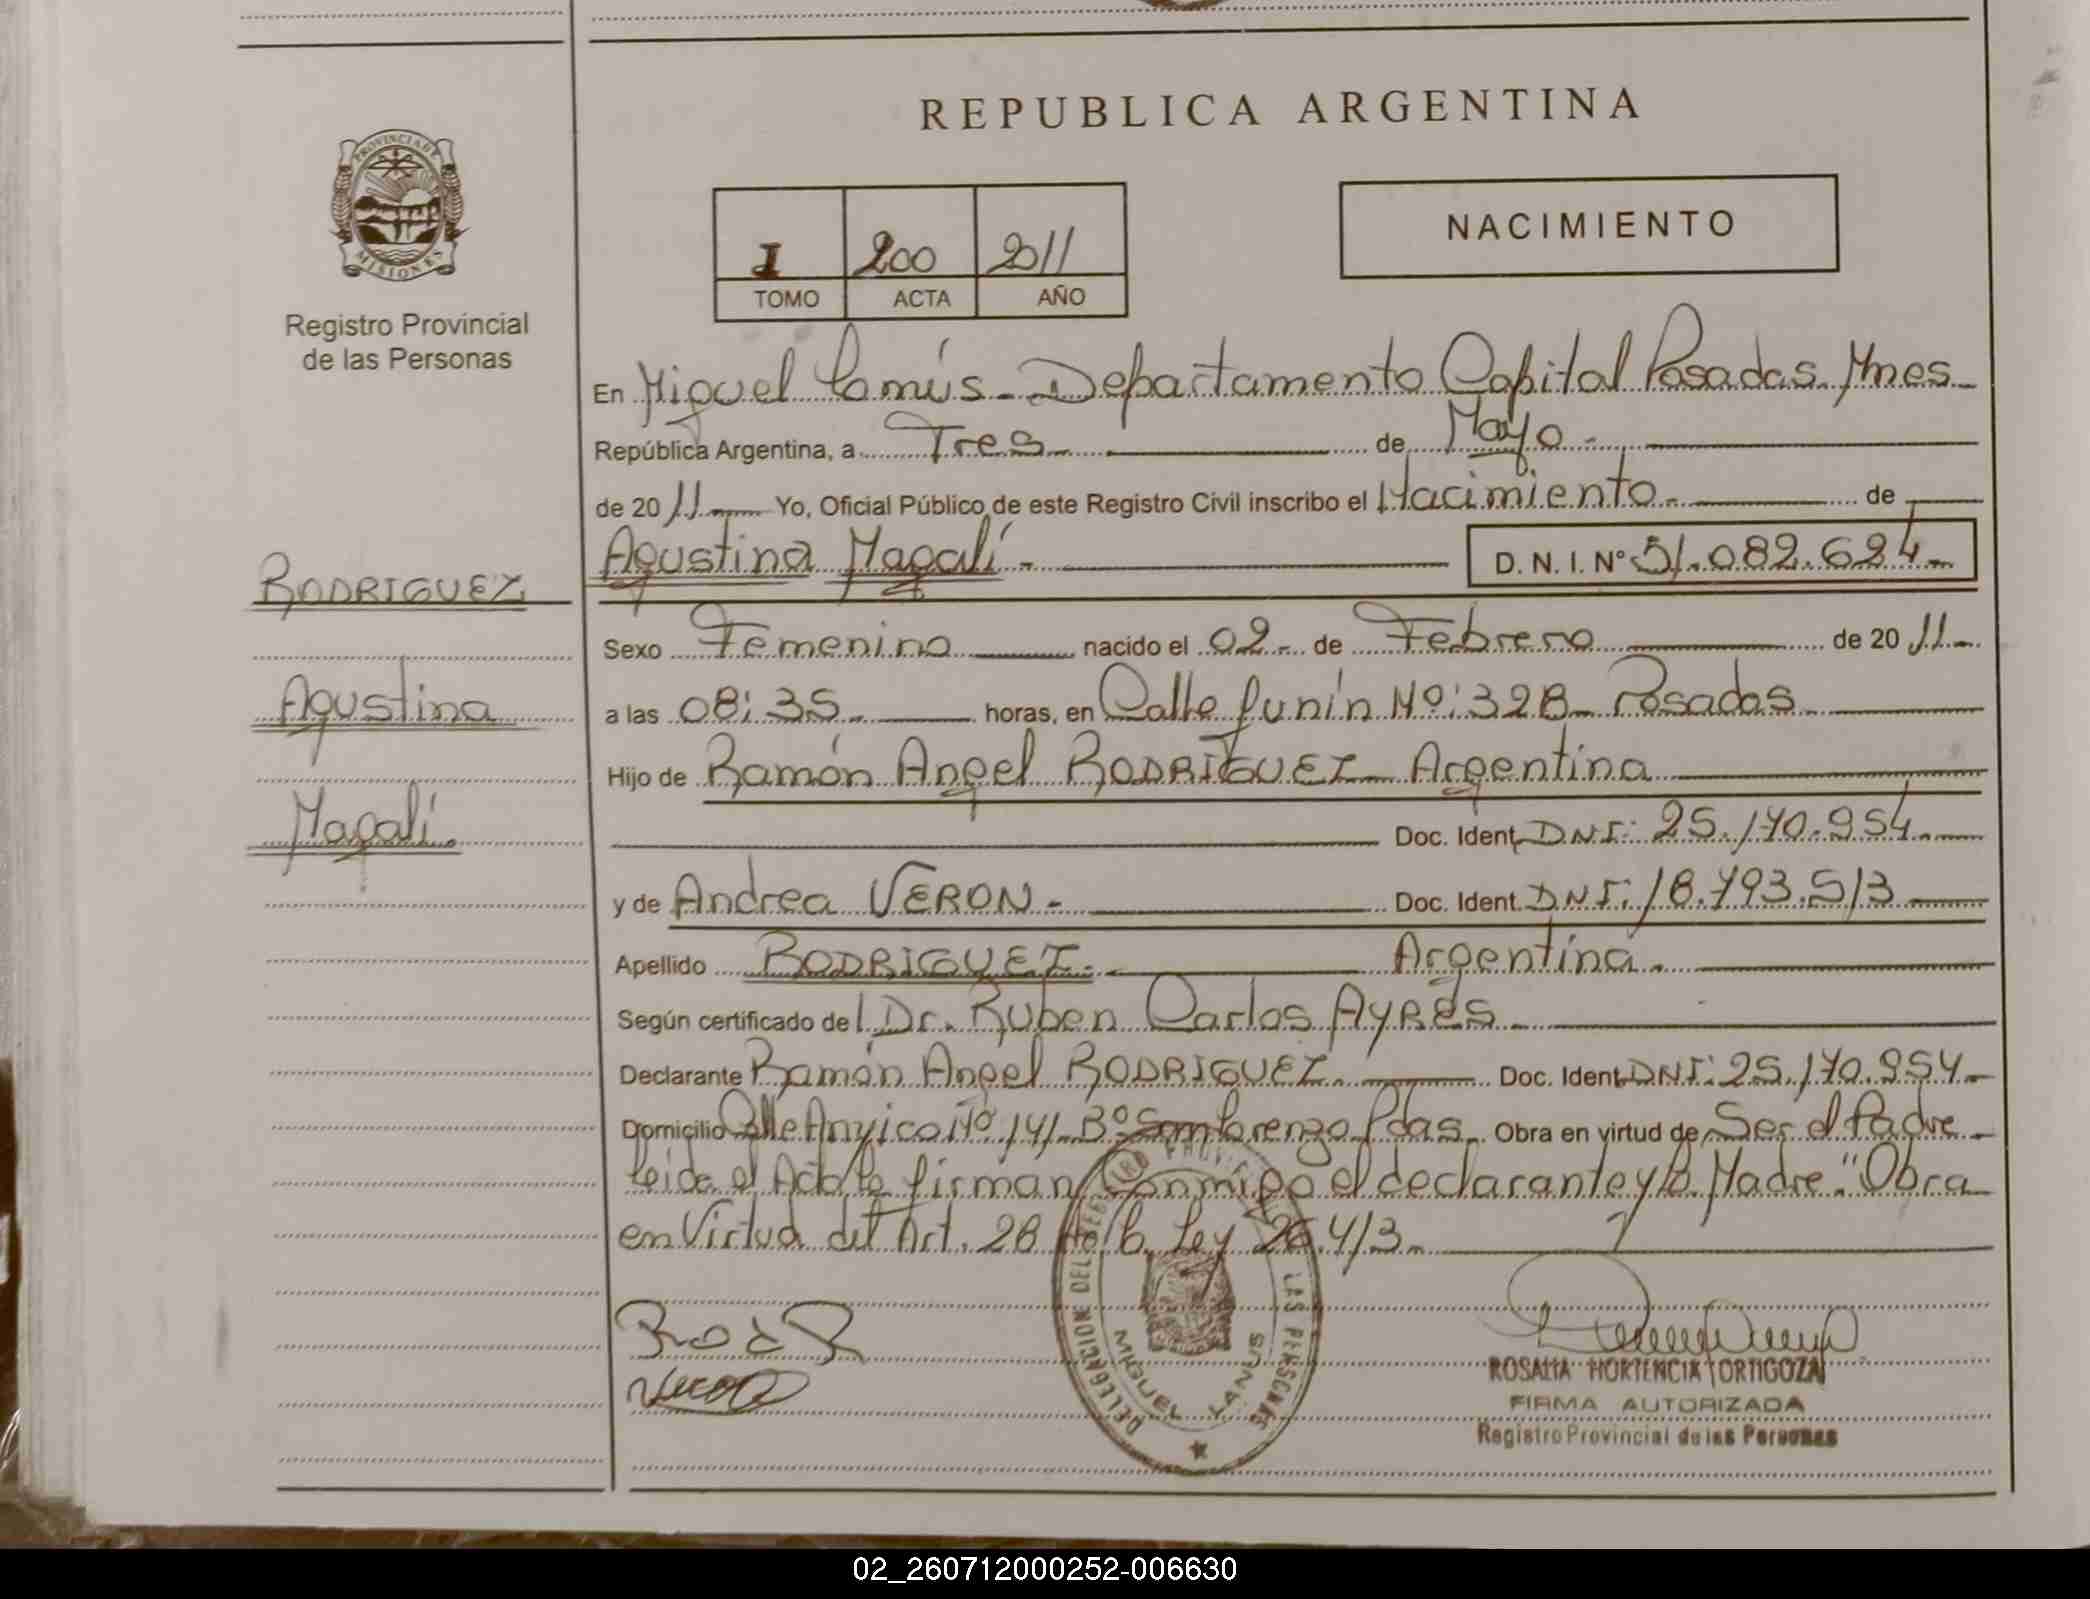 REPUBLICA ARGENTINA
PROVINCIA DE
MISIONES
Registro Provincial
de las Personas
I 200 2011
TOMO ACTA AÑO
NACIMIENTO
En Miguel Lanús - Departamento Capital Posadas Mnes -
República Argentina, a Tres de Mayo -
de 2011 Yo, Oficial Público de este Registro Civil inscribo el Nacimiento - de
Agustina Magalí - D. N. I. Nº 51.082.624 -
RODRIGUEZ
Agustina
Magalí.
Sexo Femenino nacido el 02 - de Febrero de 2011 -
a las 08:35 - horas, en Calle Junín Nº: 328 - Posadas
Hijo de Ramón Angel RODRIGUEZ - Argentina
Doc. Ident. DNI: 25.170.954 -
y de Andrea VERON - Doc. Ident. DNI: 18.793.513
Apellido RODRIGUEZ - Argentina -
Según certificado del Dr. Ruben Carlos AYRES -
Declarante Ramón Angel RODRIGUEZ - Doc. Ident. DNI: 25.170.954 -
Domicilio Calle Nº 141 - Bº San Lorenzo Pdas - Obra en virtud de Ser el Padre -
Leida el Acta la firman Conmigo el declarante y la Madre - "Obra
en Virtud del Art. 28 Ley 26.413 -
DELEGACION DEL REGISTRO PROVINCIAL DE LAS PERSONAS
MIGUEL LANUS
ROSALIA HORTENCIA ORTIGOZA
FIRMA AUTORIZADA
Registro Provincial de las Personas
02_260712000252-006630